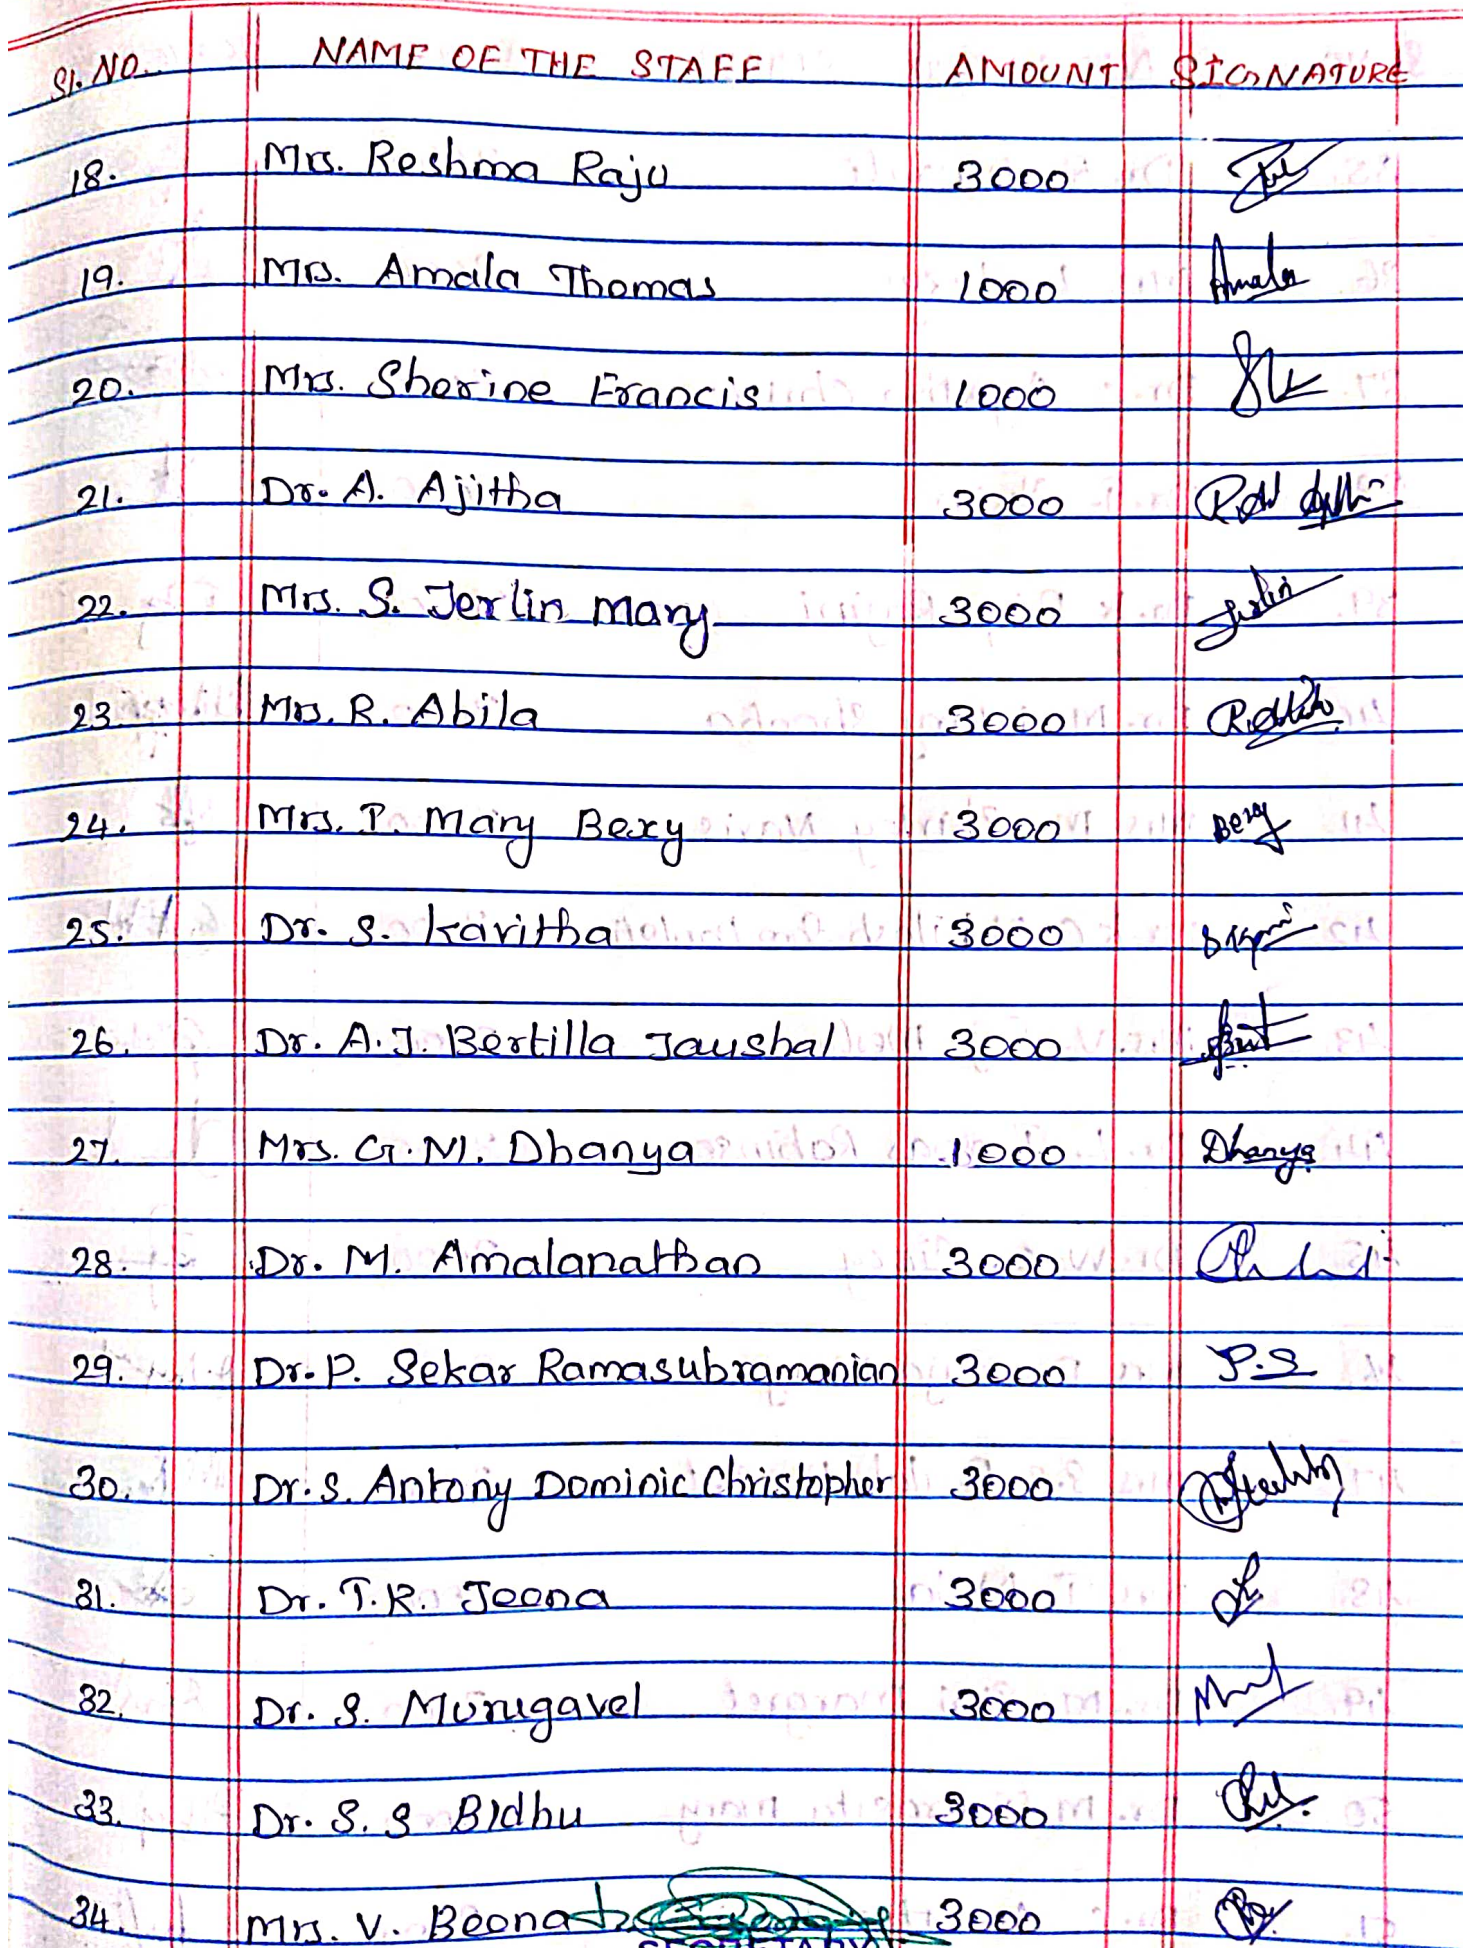 Sl. NO. NAME OF THE STAFF AMOUNT SIGNATURE
18. Mrs. Reshma Raju 3000
19. Mrs. Amala Thomas 1000 Amala
20. Mrs. Sherine Francis 1000
21. Dr. A. Ajitha 3000
22. Mrs. S. Jerlin Mary 3000 Jerlin
23. Mrs. R. Abila 3000
24. Mrs. P. Mary Bexy 3000 Bexy
25. Dr. S. Kavitha 3000
26. Dr. A. J. Bertilla Jaushal 3000
27. Mrs. G. M. Dhanya 1000 Dhanya
28. Dr. M. Amalanathan 3000
29. Dr. P. Sekar Ramasubramanian 3000 P.S
30. Dr. S. Antony Dominic Christopher 3000
31. Dr. T. R. Jeena 3000
32. Dr. S. Murugavel 3000
33. Dr. S. S Bidhu 3000
34. Mrs. V. Beena 3000
SECRETARY